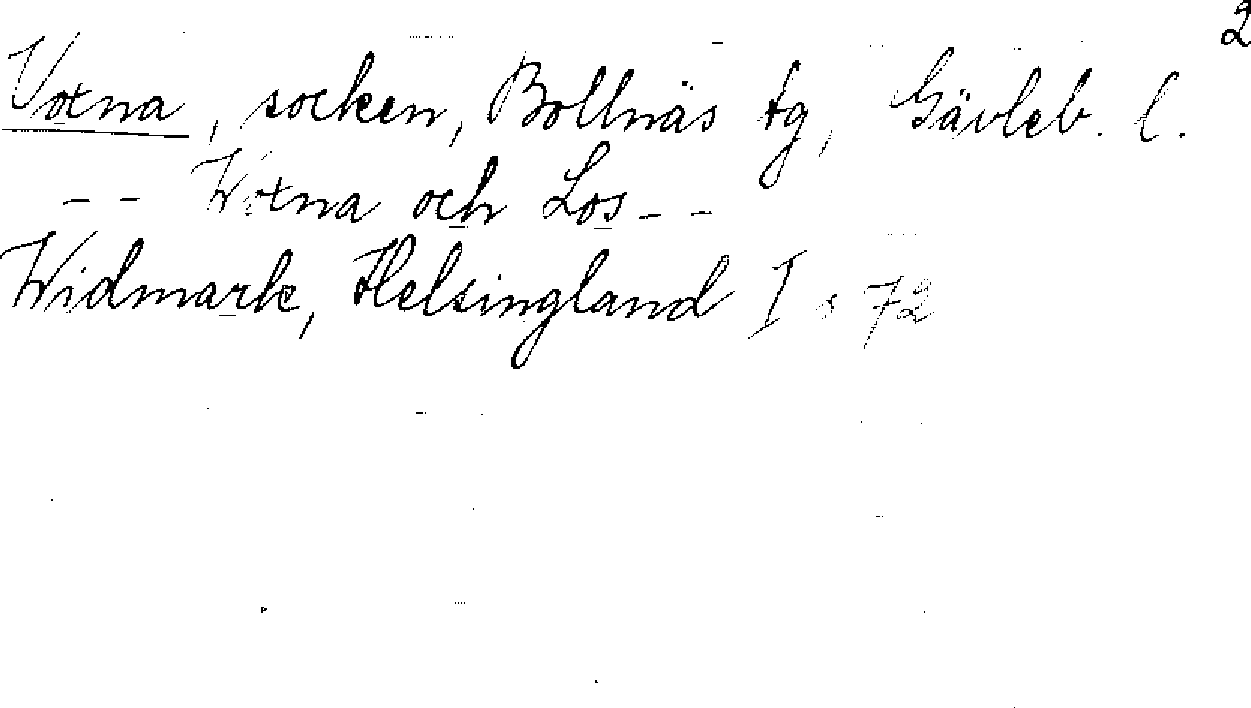 2
Voxna, socken, Bollnäs tg, Gävleb. l.
-- Woxna och Los --
Widmark, Helsingland I s 72